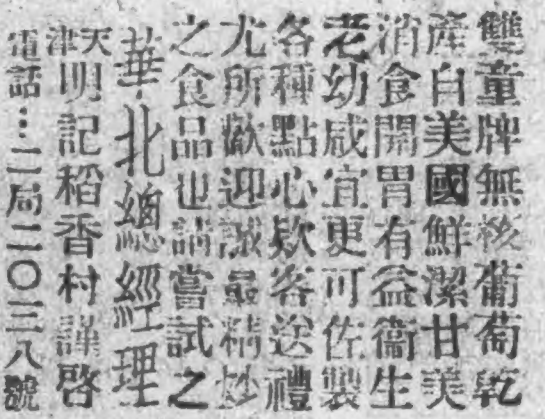 雙童牌無核葡萄乾
產自美國鮮潔甘美
消食開胃有益衞生
老幼咸宜更可佐製
各種點心欵客送禮
尤所歡迎誠最精妙
之食品也請嘗試之
華北總經理
天津明記稻香村謹啓
電話…二局二〇三八號